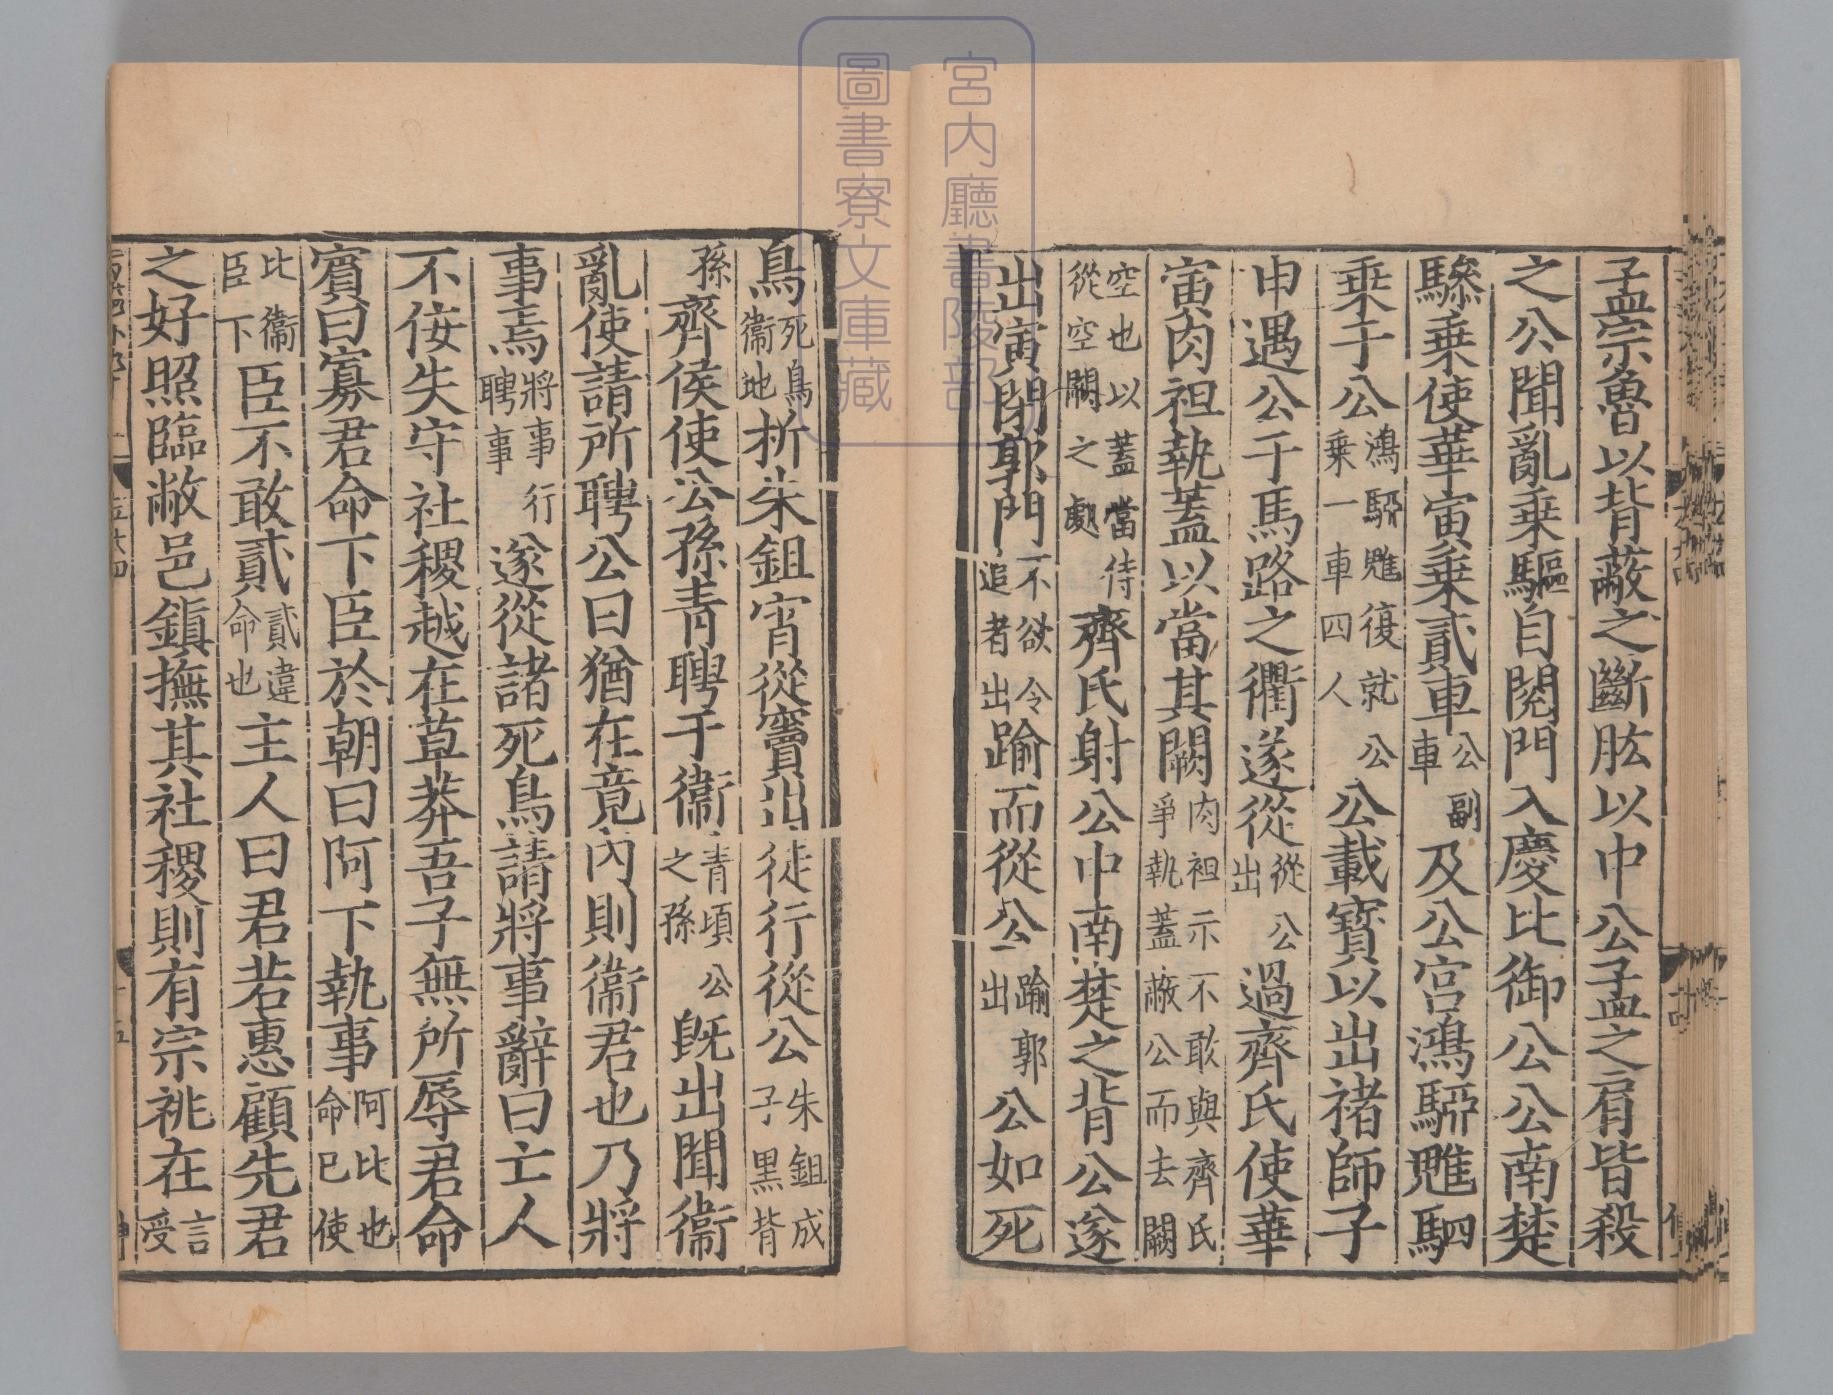 孟宗魯以背蔽之斷肱以中公孟之肩皆殺
之公聞亂乗驅自閱門入慶比御公公南楚
驂乗使華寅乗貳車公副車及公宮鴻駵魋駟
乗于公鴻駵魋復就公乗一車四人公載寳以出褚師子
申遇公于馬路之衢遂從從公出過齊氏使華
寅肉袒執蓋以當其闕肉袒示不敢與齊氏爭執蓋蔽公而去闕
空也以蓋當侍從空闕之處齊氏射公中南楚之背公遂
出寅閉郭門不欲令追者出踰而從公踰郭出公如死
鳥死鳥衞地析朱鉏宵從竇出徒行從公朱鉏成子黒背
孫齊侯使公孫青聘于衞青頃公之孫旣出聞衞
亂使請所聘公曰猶在竟內則衞君也乃將
事焉將事行聘事遂從諸死鳥請將事辭曰亡人
不佞失守社稷越在草莽吾子無所辱君命
賓曰寡君命下臣於朝曰阿下執事阿比也命巳使
比衞臣下臣不敢貳貳違命也主人曰君若惠顧先君
之好照臨敝邑鎮撫其社稷則有宗祧在言受
宮内廳書陵部
圖書寮文庫藏